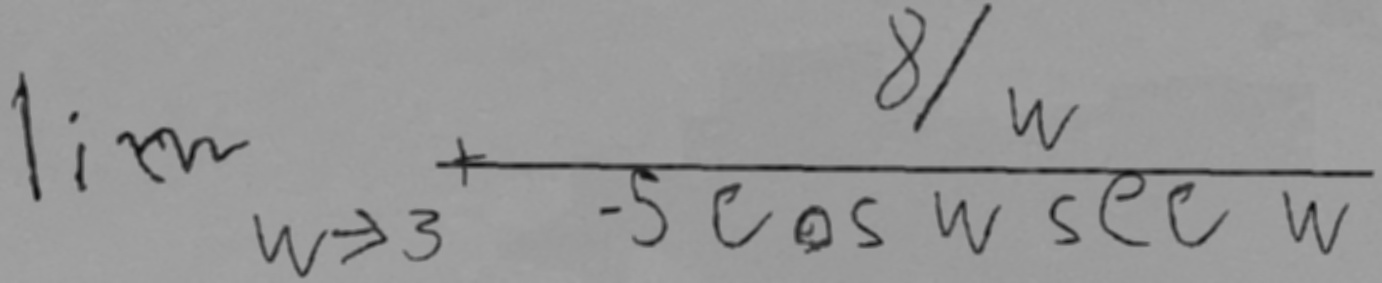 lim_{w→3^+} \frac{8/w}{-5 cos w sec w}